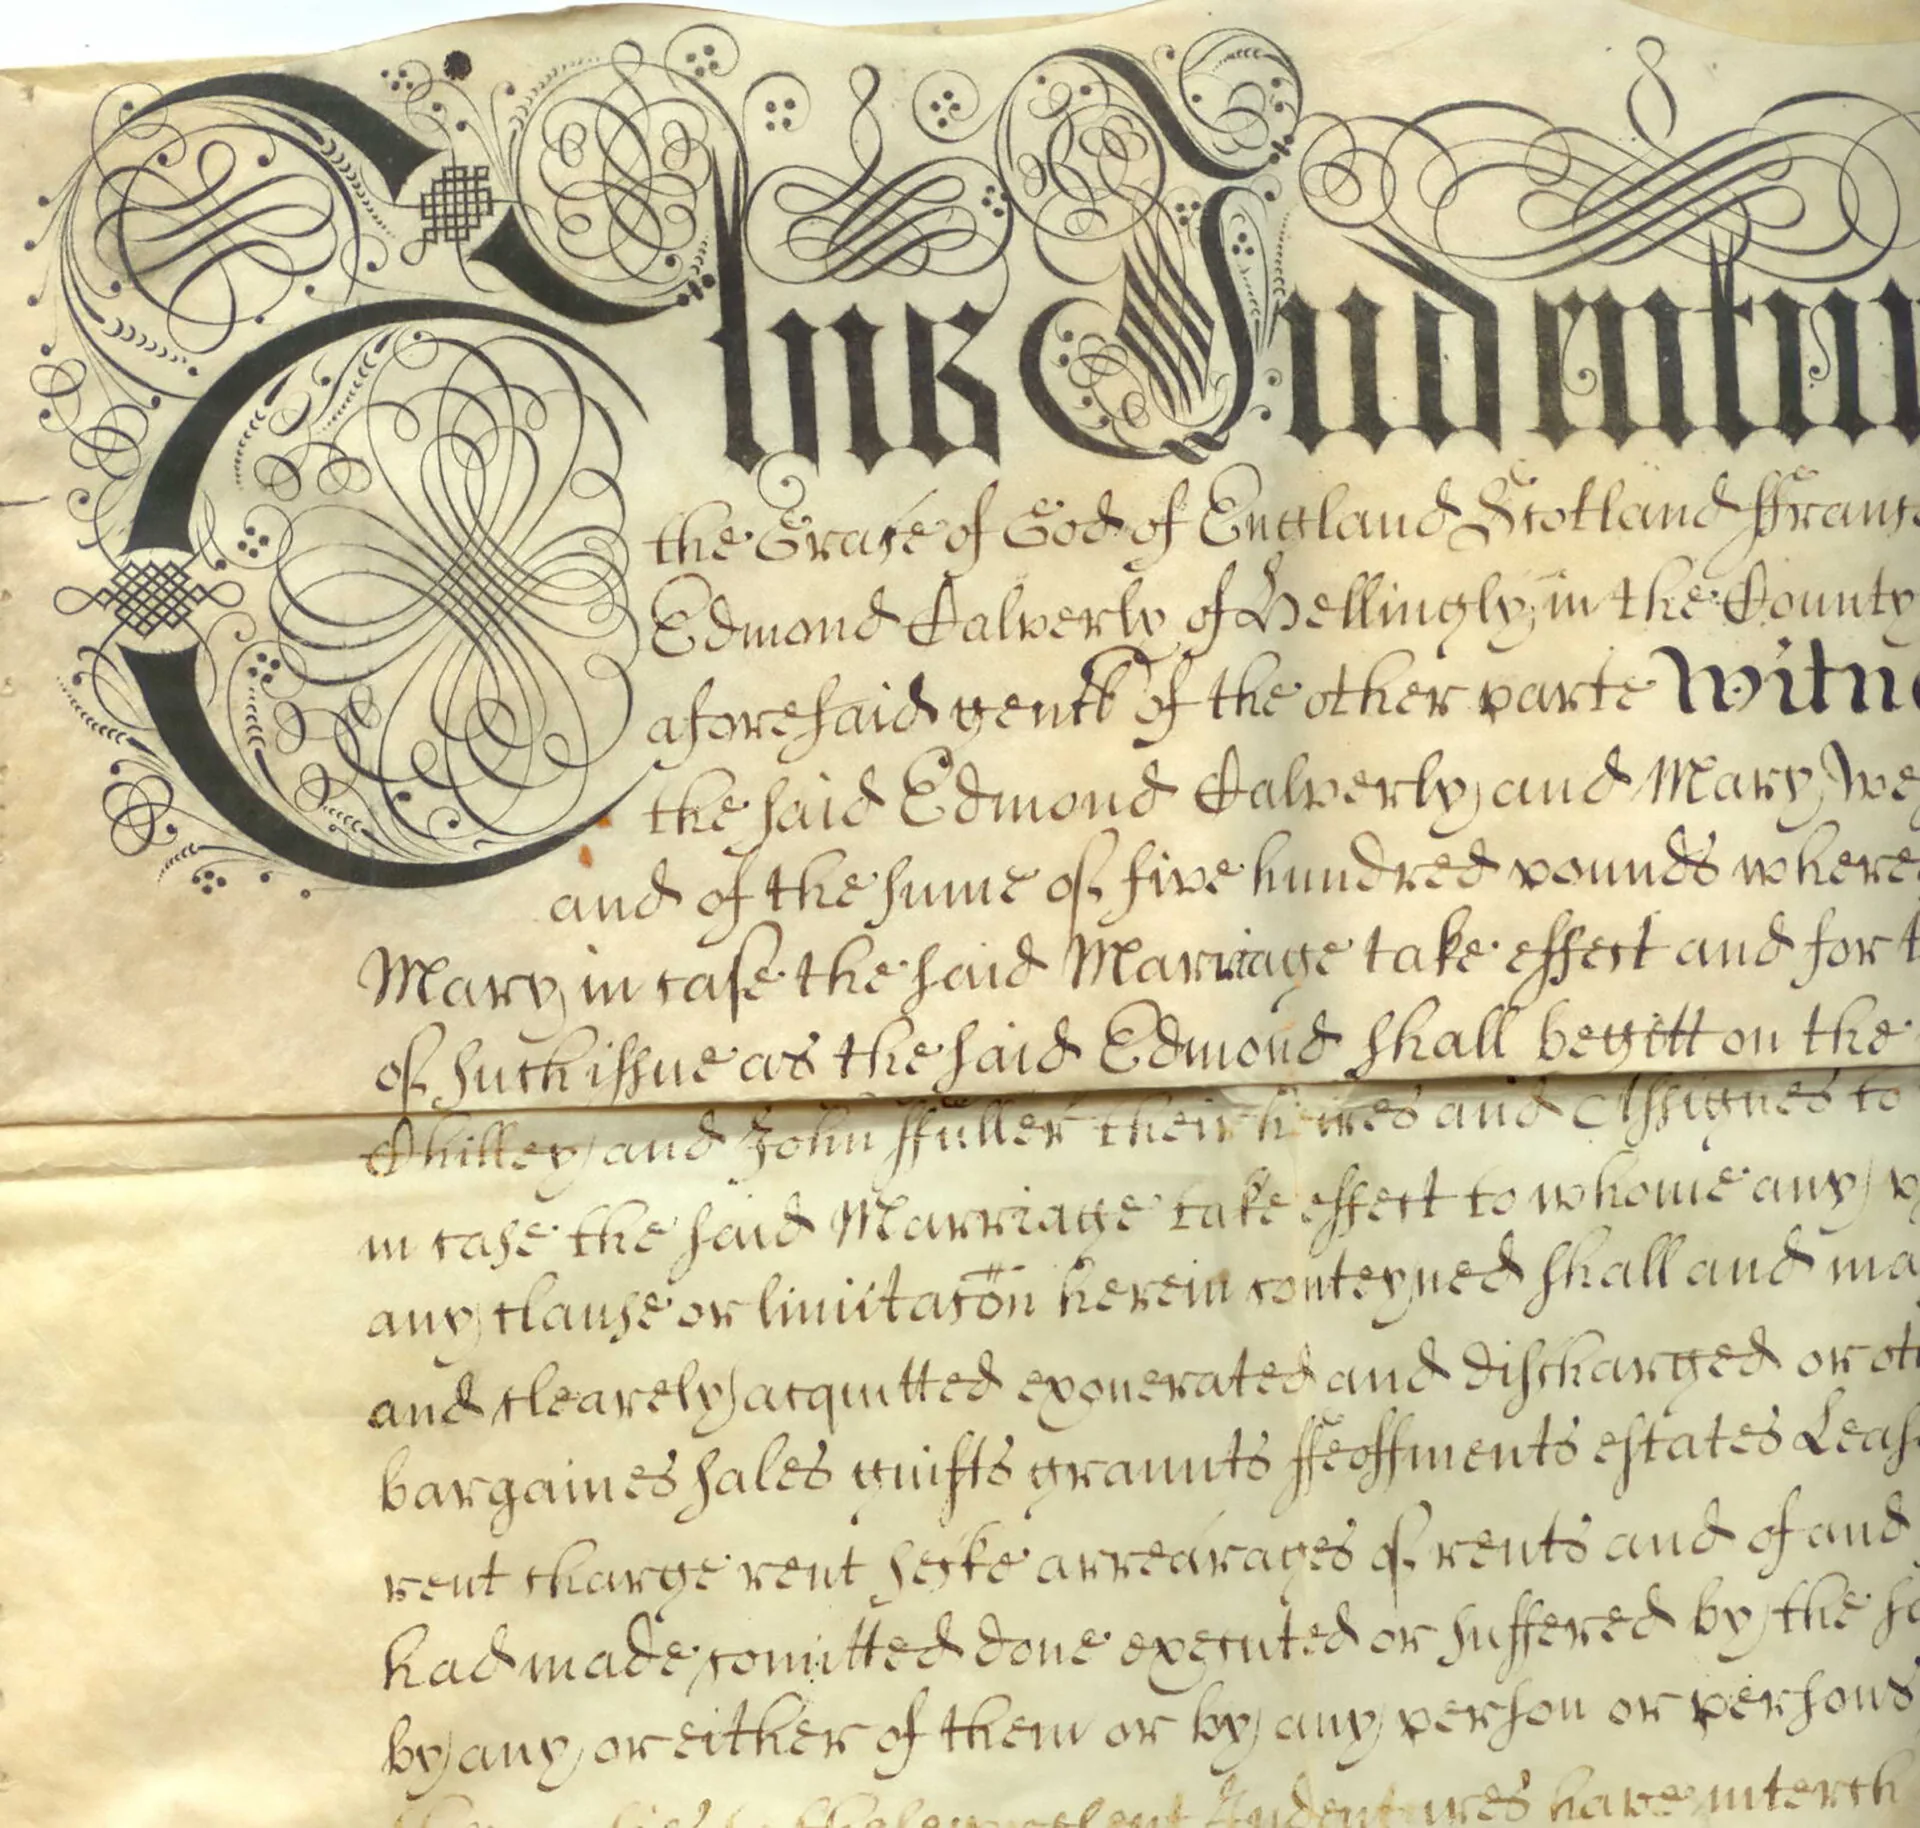 This Indentur
the Grace of God of England Scotland ffranc
Edmond Calverly of Hellingly in the County
aforesaid gentḽ of the other parte Witne
the said Edmond Calverly and Mary We
and of the sume of five hundred pounds where
Mary in case the said Marriage take effect and for t
of such issue as the said Edmond shall begett on the
Chilley and John ffuller their heires and Assignes to
in case the said Marriage take effect to whome any
any clause or limitacõn herein conteyned shall and ma
and clearely acquitted exonerated and discharged or ot
bargaines sales guifts graunts ffeoffments estates Leas
rent charge rent secke arrearages of rents and of and
had made comitted done executed or suffered by the sa
by any or either of them or by any person or persons
Indentures have interch